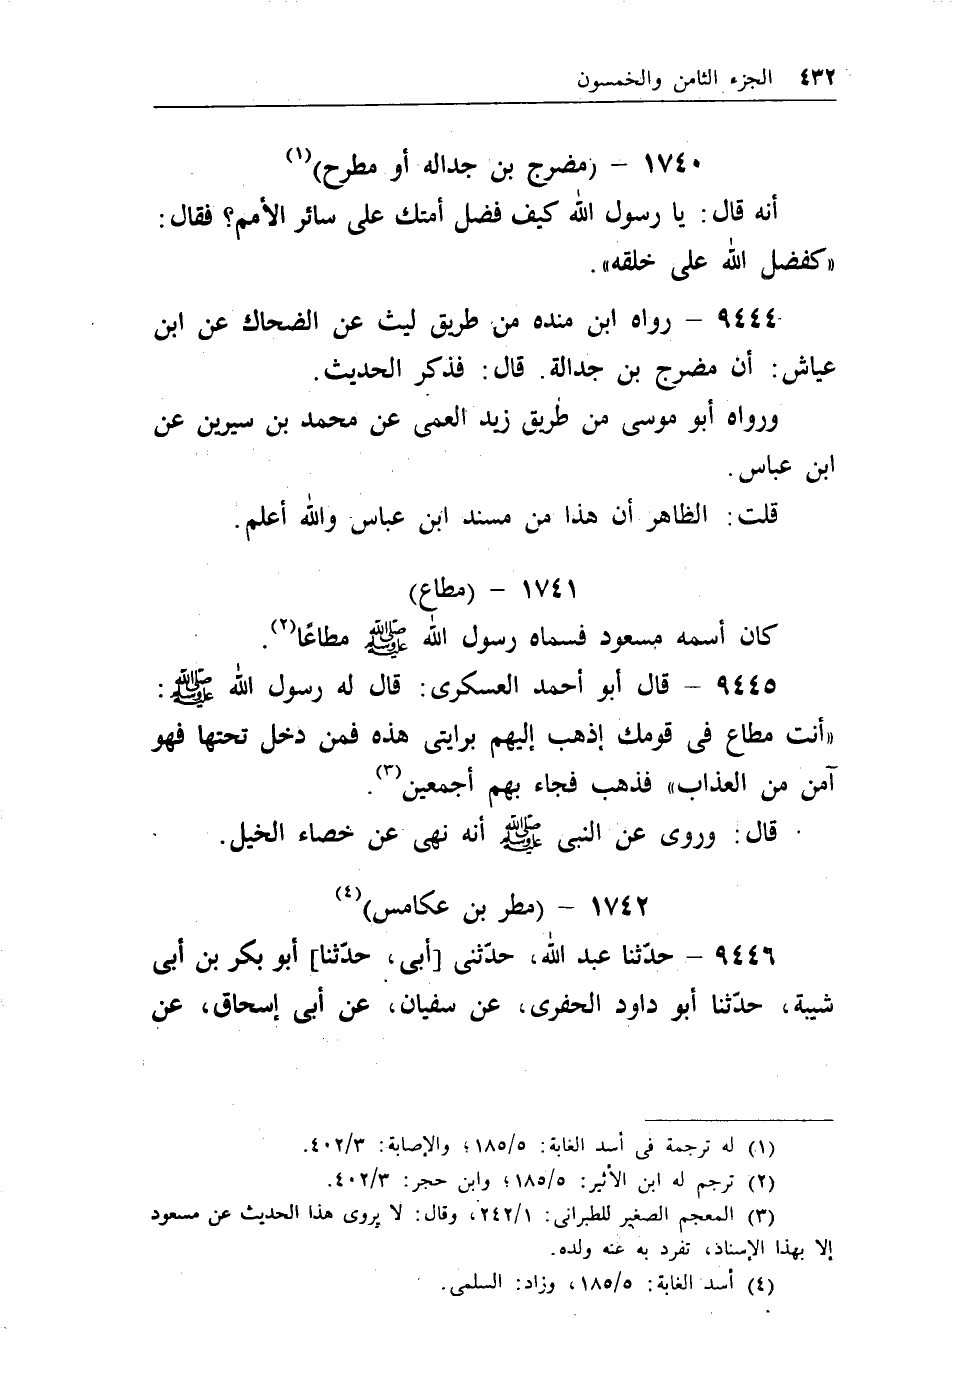 ٤٣٢ الجزء الثامن والخمسون
١٧٤٠ – (مضرج بن جداله أو مطرح)(١)
أنه قال: يا رسول الله كيف فضل أمتك على سائر الأمم؟ فقال:
«كفضل الله على خلقه».
٩٤٤٤ – رواه ابن منده من طريق ليث عن الضحاك عن ابن
عياش: أن مضرج بن جدالة. قال: فذكر الحديث.
ورواه أبو موسى من طريق زيد العمى عن محمد بن سيرين عن
ابن عباس.
قلت: الظاهر أن هذا من مسند ابن عباس والله أعلم.
١٧٤١ – (مطاع)
كان أسمه مسعود فسماه رسول الله ﷺ مطاعًا(٢).
٩٤٤٥ – قال أبو أحمد العسكرى: قال له رسول الله ﷺ:
«أنت مطاع فى قومك إذهب إليهم برايتى هذه فمن دخل تحتها فهو
آمن من العذاب» فذهب فجاء بهم أجمعين(٣).
قال: وروى عن النبى ﷺ أنه نهى عن خصاء الخيل.
١٧٤٢ – (مطر بن عكامس)(٤)
٩٤٤٦ – حدّثنا عبد الله، حدّثنى [أبى، حدّثنا] أبو بكر بن أبى
شيبة، حدّثنا أبو داود الحفرى، عن سفيان، عن أبى إسحاق، عن
(١) له ترجمة فى أسد الغابة: ١٨٥/٥؛ والإصابة: ٤٠٢/٣.
(٢) ترجم له ابن الأثير: ١٨٥/٥؛ وابن حجر: ٤٠٢/٣.
(٣) المعجم الصغير للطبرانى: ٢٤٢/١، وقال: لا يروى هذا الحديث عن مسعود
إلا بهذا الإسناذ، تفرد به عنه ولده.
(٤) أسد الغابة: ١٨٥/٥، وزاد: السلمى.